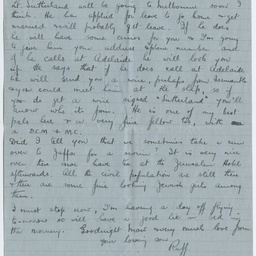 Lt. Sutherland will be going to Melbourne soon I
think. He has applied for leave to go home & get
married & will probably get leave. If he does
he will have some curios for you & I'm going
to give him your address & phone number and
if he calls at Adelaide he will look you
up. He says that if he does call at Adelaide
he will send you a wire perhaps from Fremantle
anyone could meet him at the ship, so if
you do get a wire signed "Sutherland" you'll
know who it's from. He is one of my best
pals here & a very fine fellow too, with
a DCM & MC.
Did I tell you that we sometimes take a run
over to Jaffa for a swim? It is very nice
over there now & have tea at the Jerusalem Hotel
afterwards. All the civil population are still there
& there are some fine looking Jewish girls among
them.
I must stop now, I'm having a day off flying
tomorrow so will have a good lie-in bed in
the morning. Goodnight Mair very much love from
your loving son,
Ruff